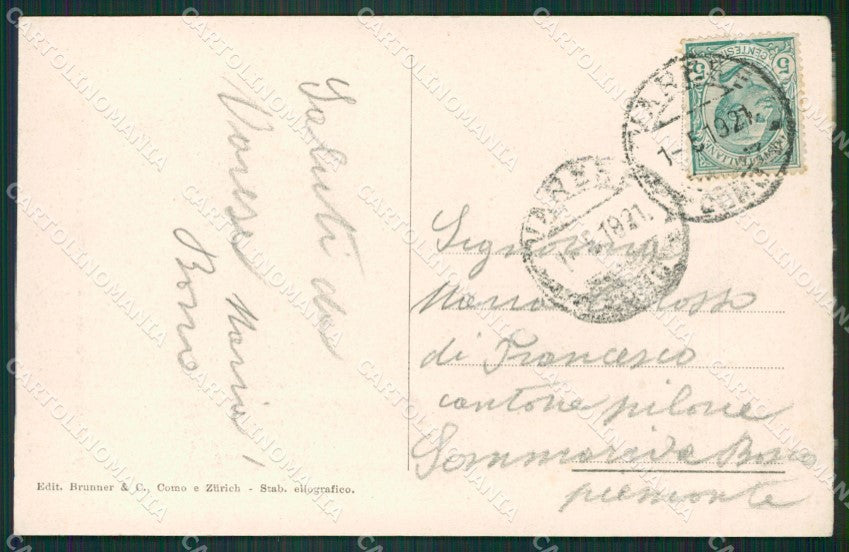 Saluti da
Varese Maria
Bosio
Edit. Brunner & C., Como e Zürich - Stab. eliografico.
CENTESI
5 5
POSTE ITALIANE
VARESE
1-5 1921
COMO
VARESE
1921
Signorina
Maria
di Francesco
cantone pilone
Sommariva Bosco
piemonte
CARTOLINOMANIA